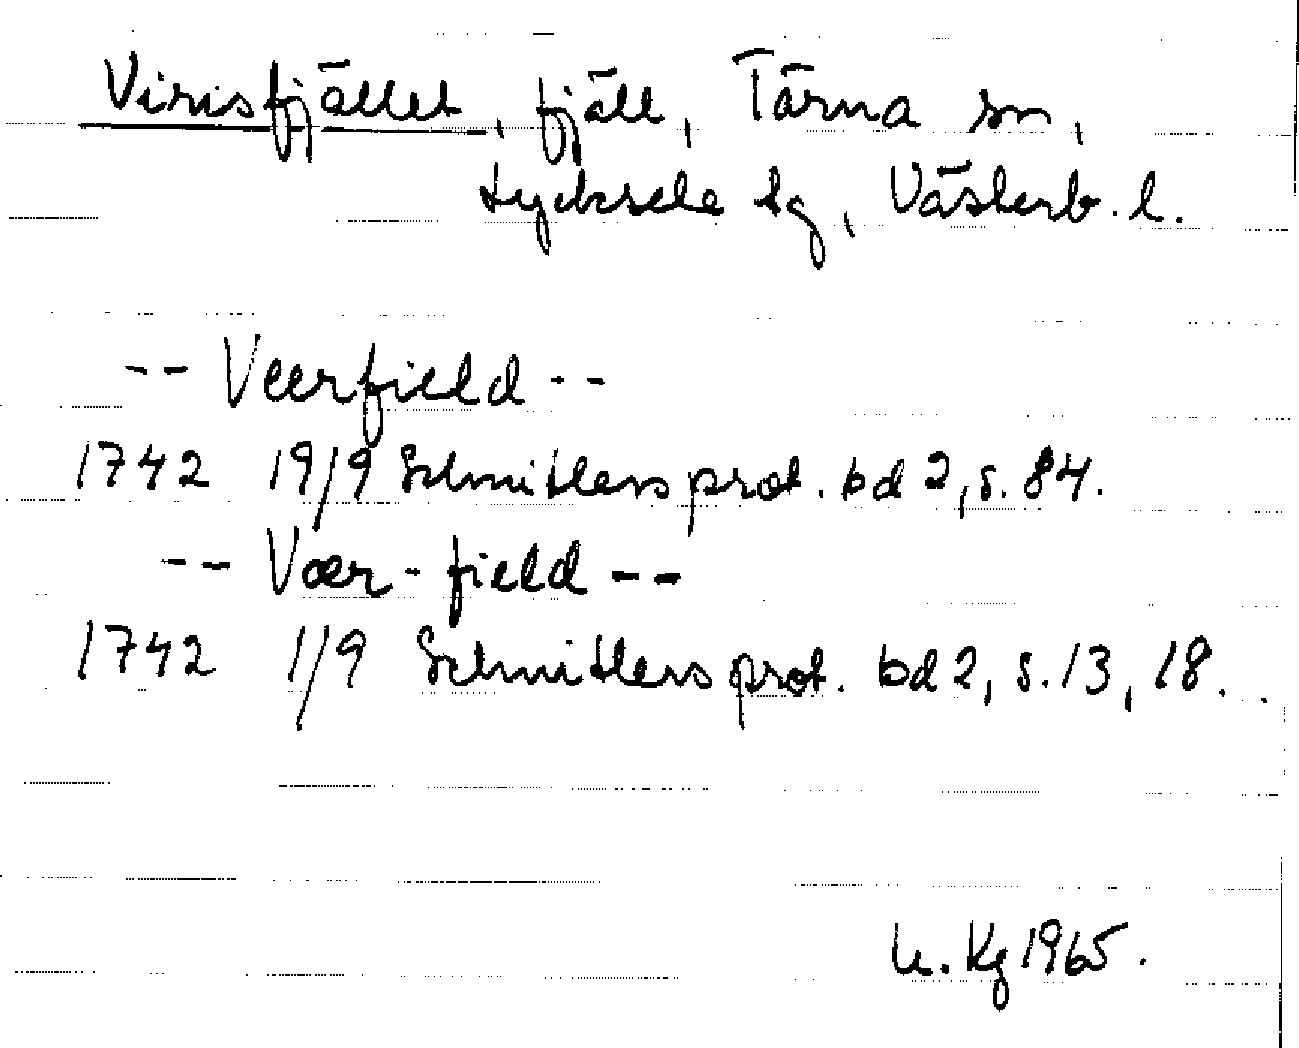 Virisfjället, fjäll, Tärna sn,
Lycksele lg, Västerb. l.
-- Veerfield --
1742 19/9 Schnitlers prot. bd 2, s. 84.
-- Vær-field --
1742 1/9 Schnitlers prot. bd 2, s. 13, 18.
Kg 1965.